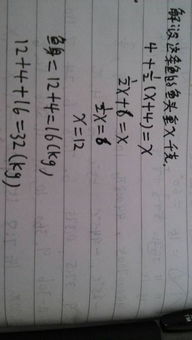 解设这条鱼的鱼头重X千克.
4+½(x+4)=x
½x+8=x
½x=8
x=12
鱼身=12+4=16(kg)
12+4+16=32(kg)